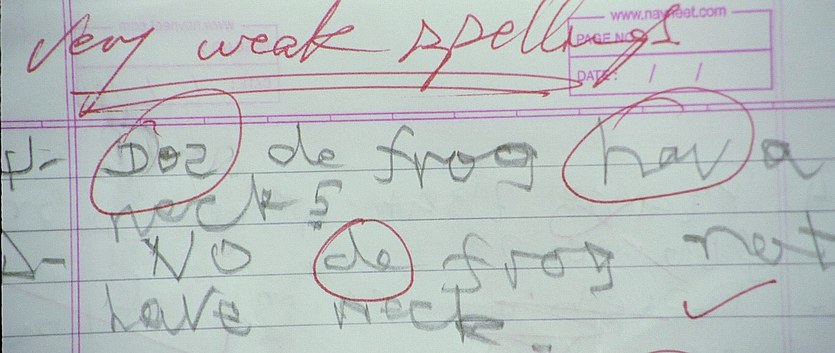 very weak spellings
www.navneet.com
PAGE NO. 1
DATE: / /
Doz de frog hav a
neck?
NO de frog not
have neck.